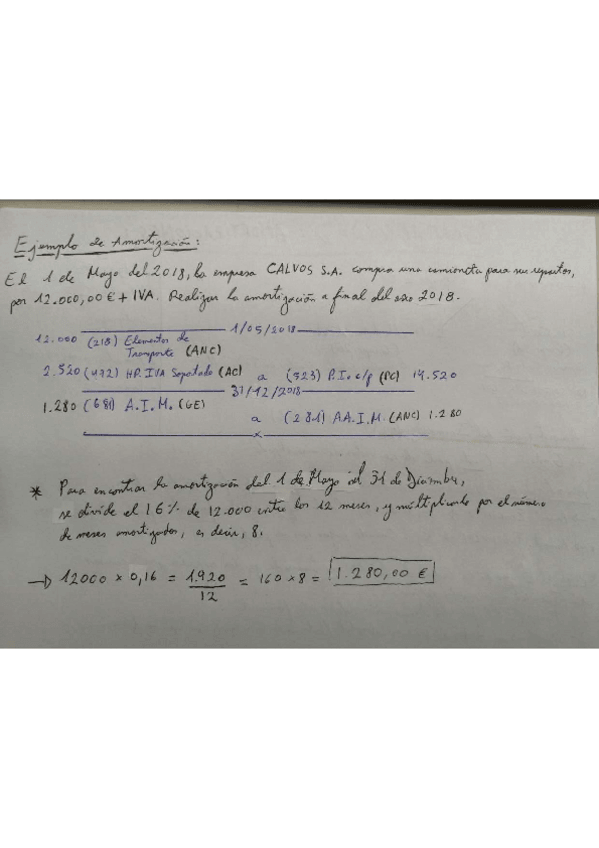 Ejemplo de Amortización:
El 1 de Mayo del 2018, la empresa CALVOS S.A. compra una camioneta para sus repartos,
por 12.000,00 € + IVA. Realizar la amortización a final del año 2018.
1/05/2018
12.000 (218) Elementos de
Transporte (ANC)
2.520 (472) HP. IVA Soportado (AC) a (523) P.I. c/p (PC) 14.520
31/12/2018
1.280 (681) A.I.M. (GE)
a (281) A.A.I.M. (ANC) 1.280
x
* Para encontrar la amortización del 1 de Mayo al 31 de Diciembre,
se divide el 16% de 12.000 entre los 12 meses, y múltiplicado por el número
de meses amortizados, es decir, 8.
→ 12000 x 0,16 = 1.920 = 160 x 8 = 1.280,00 €
12